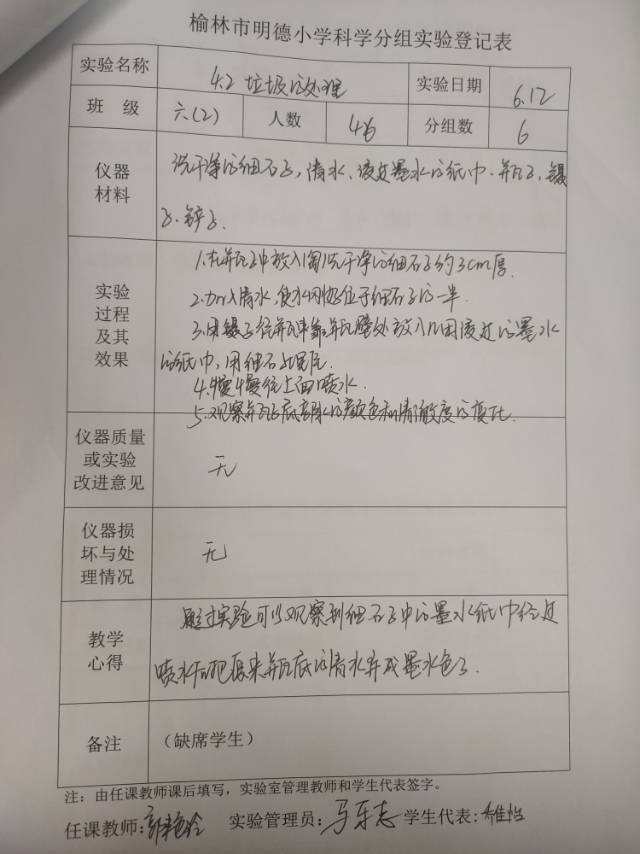 榆林市明德小学科学分组实验登记表
实验名称 4.2 垃圾的处理 实验日期 6.12
班 级 六(2) 人数 46 分组数 6
仪器材料 洗干净的细石子,清水,浸过墨水的纸巾、瓶子、镊
子、锌子.
实验过程及其效果 1.在瓶子中放入淘洗干净的细石子约3cm厚.
2.加入清水,使水刚好位于细石子的一半.
3.用镊子往瓶中靠瓶壁处放入几团浸过的墨水
的纸巾,用细石子
4.慢慢往上面喷水.
5.观察瓶子底部水的颜色和清澈度的变化.
仪器质量或实验改进意见 无
仪器损坏与处理情况 无
教学心得 通过实验可以观察到细石子中的墨水纸巾经过
喷水后把原来瓶底的清水弄成墨水色了.
备注 (缺席学生)
注:由任课教师课后填写,实验室管理教师和学生代表签字。
任课教师: 实验管理员:马乐志 学生代表: